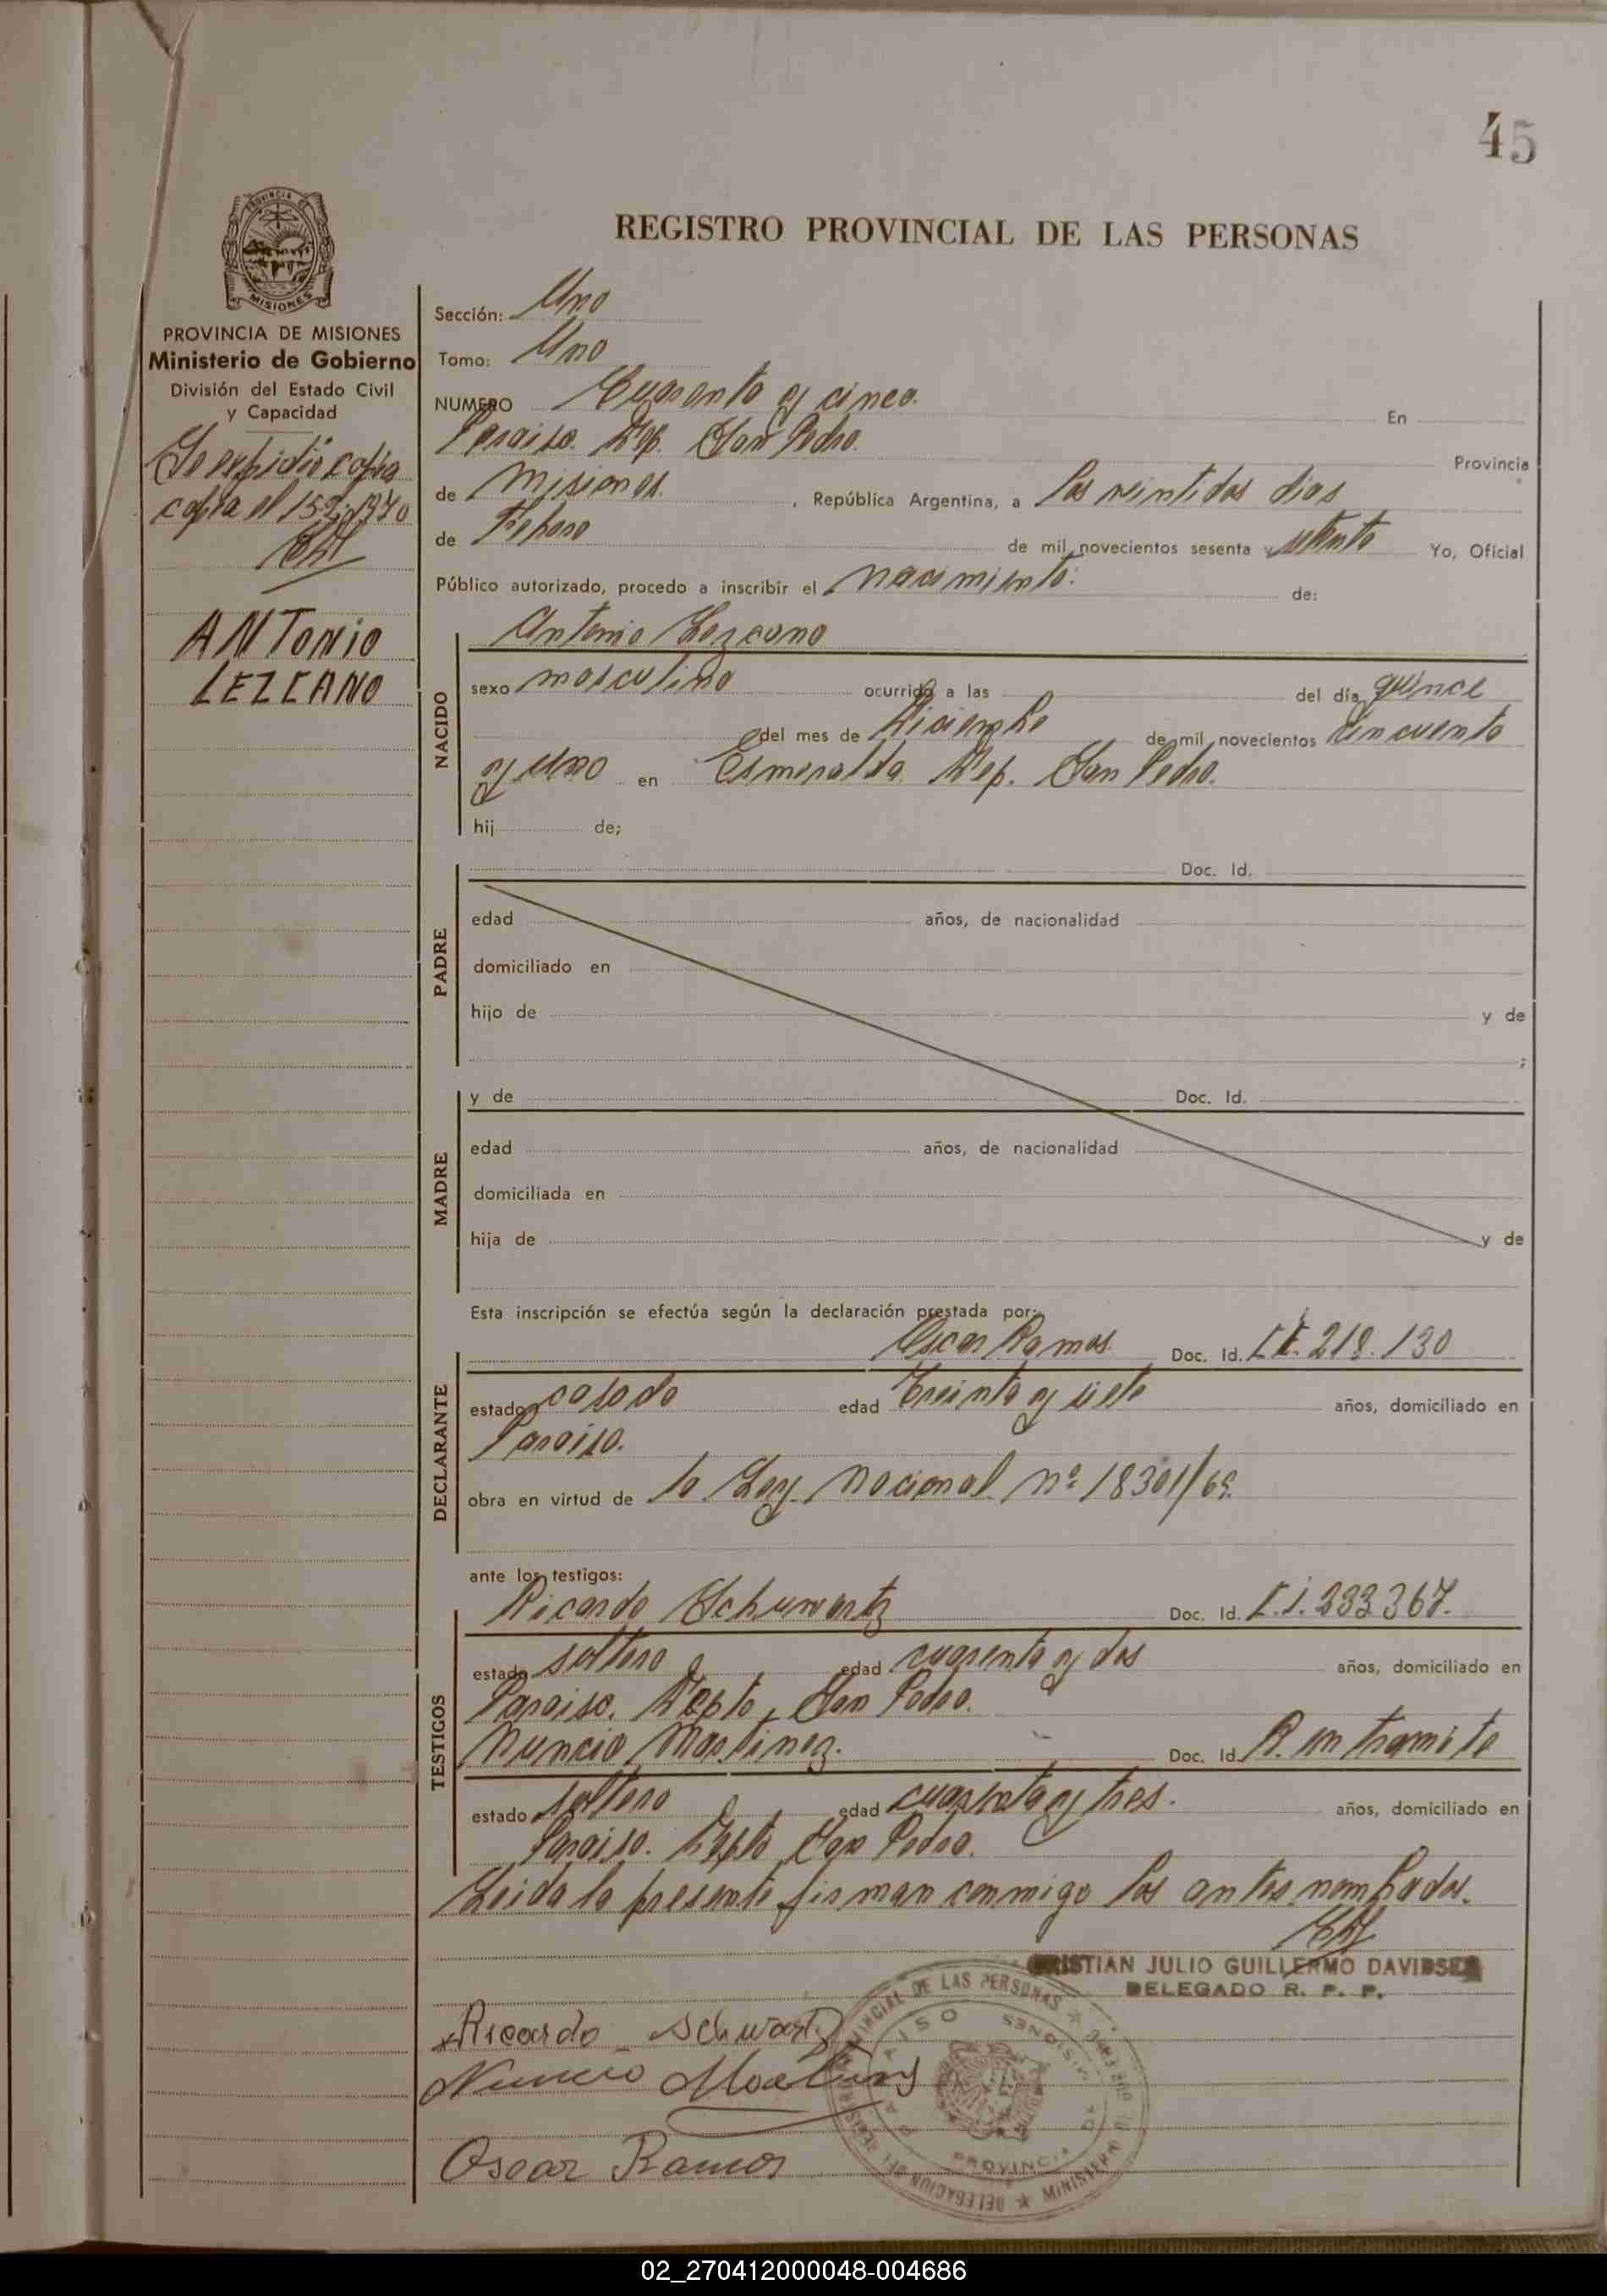 45
REGISTRO PROVINCIAL DE LAS PERSONAS
PROVINCIA DE MISIONES
MISIONES
PROVINCIA DE MISIONES
Ministerio de Gobierno
División del Estado Civil
y Capacidad
Se expidió copia
copia el 15-2-1970
ANTONIO
LEZCANO
Sección: Uno
Tomo: Uno
NUMERO Cuarenta y cinco. En
Paraiso. Dep. San Pedro. Provincia
de Misiones. , República Argentina, a los veintidos dias
de Febrero de mil novecientos sesenta y setenta Yo, Oficial
Público autorizado, procedo a inscribir el nacimiento: de:
NACIDO
Antonio Lezcano
sexo masculino ocurrido a las del día quince
del mes de Diciembre de mil novecientos cincuenta
y uno en Esmeralda. Dep. San Pedro.
hij de;
PADRE
Doc. Id.
edad años, de nacionalidad
domiciliado en
hijo de y de
;
MADRE
y de Doc. Id.
edad años, de nacionalidad
domiciliada en
hija de y de
Esta inscripción se efectúa según la declaración prestada por:
DECLARANTE
Oscar Ramos Doc. Id. 218.130
estado casado edad treinta y siete años, domiciliado en
Paraiso.
obra en virtud de la Ley Nacional nº 18301/69.
ante los testigos:
TESTIGOS
Ricardo Schwartz Doc. Id. C.I. 233367.
estado soltero edad cuarenta y dos años, domiciliado en
Paraiso. Depto. San Pedro.
Nuncio Martinez. Doc. Id. en tramite
estado soltero edad cuarenta y tres. años, domiciliado en
Paraiso. Depto San Pedro.
Leida la presente firman conmigo los antes nombrados.
CRISTIAN JULIO GUILLERMO DAVIDSEN
DELEGADO R. P. P.
Ricardo Schwartz
Nuncio Martinez
Oscar Ramos
DELEGACION DEL REGISTRO PROVINCIAL DE LAS PERSONAS ★ MINISTERIO DE GOBIERNO ★
PARAISO
PROVINCIA DE MISIONES
02_270412000048-004686